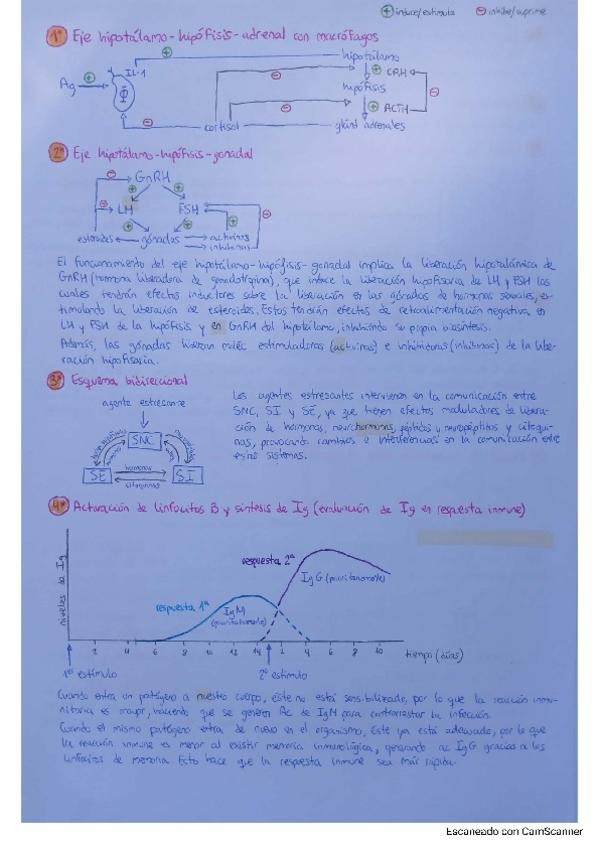 ⊕ induce/estimula ⊖ inhibe/suprime
1º Eje hipotálamo-hipófisis-adrenal con macrófagos
⊕ hipotálamo
Ag ⊕ IL-1 ⊖ ⊕ CRH
Φ hipófisis ⊖
⊖ ⊕ ACTH
⊖ cortisol gland adrenales
2º Eje hipotálamo-hipófisis-gonadal
⊖ GnRH
⊕ ⊕
⊖ LH FSH ⊖
⊕ ⊕ ⊕
esteroides gónadas activinas
inhibinas
El funcionamiento del eje hipotálamo-hipófisis-gonadal implica la liberación hipotalámica de
GnRH (hormona liberadora de gonadotropina), que induce la liberación hipofisaria de LH y FSH las
cuales tendrán efectos inductores sobre la liberación en las gónadas de hormonas sexuales, es-
timulando la liberación de esteroides. Estos tendrán efectos de retroalimentación negativa en
LH y FSH de la hipófisis y en GnRH del hipotálamo, inhibiendo su propia biosíntesis.
Además, las gónadas liberan moléc estimuladoras (activinas) e inhibidoras (inhibinas) de la libe-
ración hipofisaria.
3º Esquema bidireccional
agente estresante
SNC
SE hormonas SI
citoquinas
Los agentes estresantes intervienen en la comunicación entre
SNC, SI y SE, ya que tienen efectos moduladores de libera-
ción de hormonas, neurohormonas, péptidos y neuropéptidos y citoqui-
nas, provocando cambios e interferencias en la comunicación entre
estos sistemas.
4º Activación de linfocitos B y síntesis de Ig (evaluación de Ig en respuesta inmune)
niveles de Ig
respuesta 2ª
IgG (mayoritariamente)
respuesta 1ª
IgM
2 4 6 8 10 12 14 2 4 6 8 10 tiempo (días)
1er estímulo 2º estímulo
Cuando entra un patógeno a nuestro cuerpo, éste no está sensibilizado, por lo que la reacción inmu-
nitaria es mayor, haciendo que se generen Ac de IgM para contrarrestar la infección.
Cuando el mismo patógeno entra de nuevo en el organismo, éste ya está adecuado, por lo que
la reacción inmune es menor al existir memoria inmunológica, generando ac IgG gracias a los
linfocitos de memoria. Esto hace que la respuesta inmune sea más rápida.
Escaneado con CamScanner